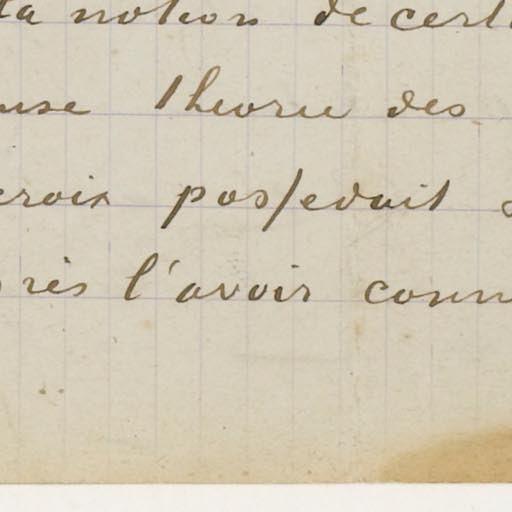 la notion de cert
use theorie des
croix possedait
près l'avoir conn